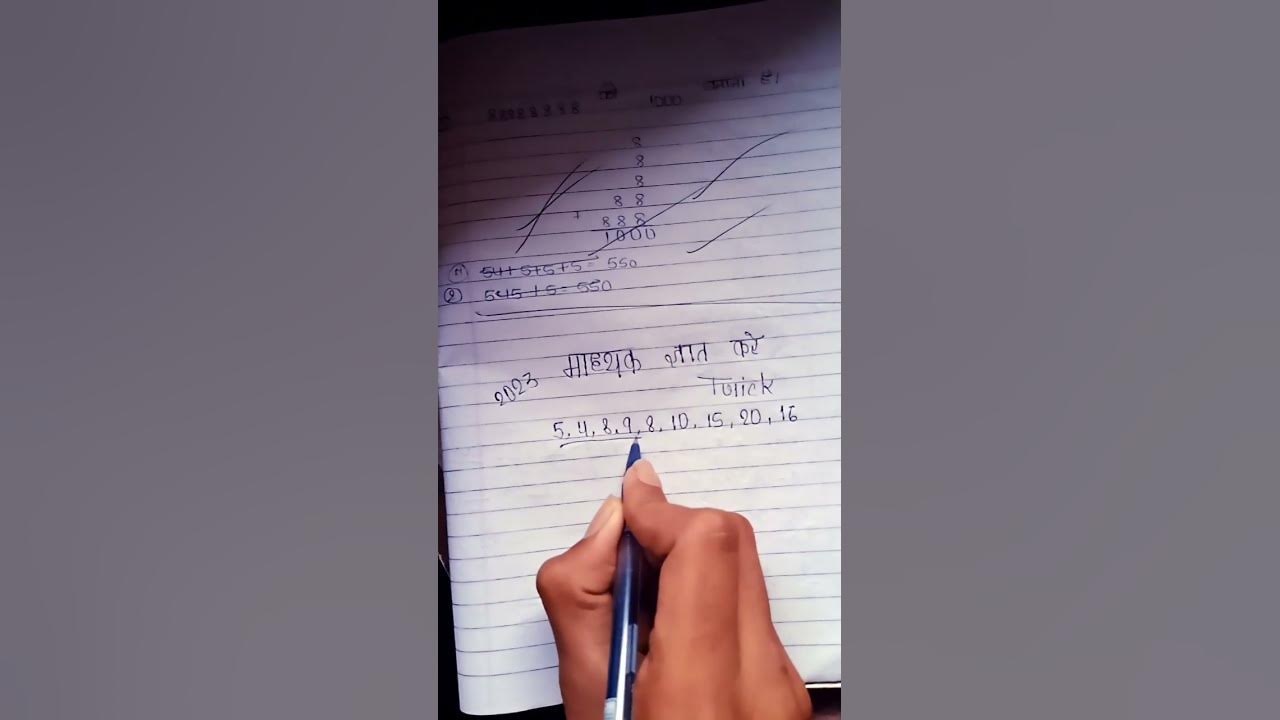 88888888 को 1000 बनाना है।
8
8
8
88
+ 888
1000
54+5+5+5= 550
② 545+5=550
2023 माध्यक ज्ञात करे
Trick
5, 4, 8, 9, 8, 10, 15, 20, 16